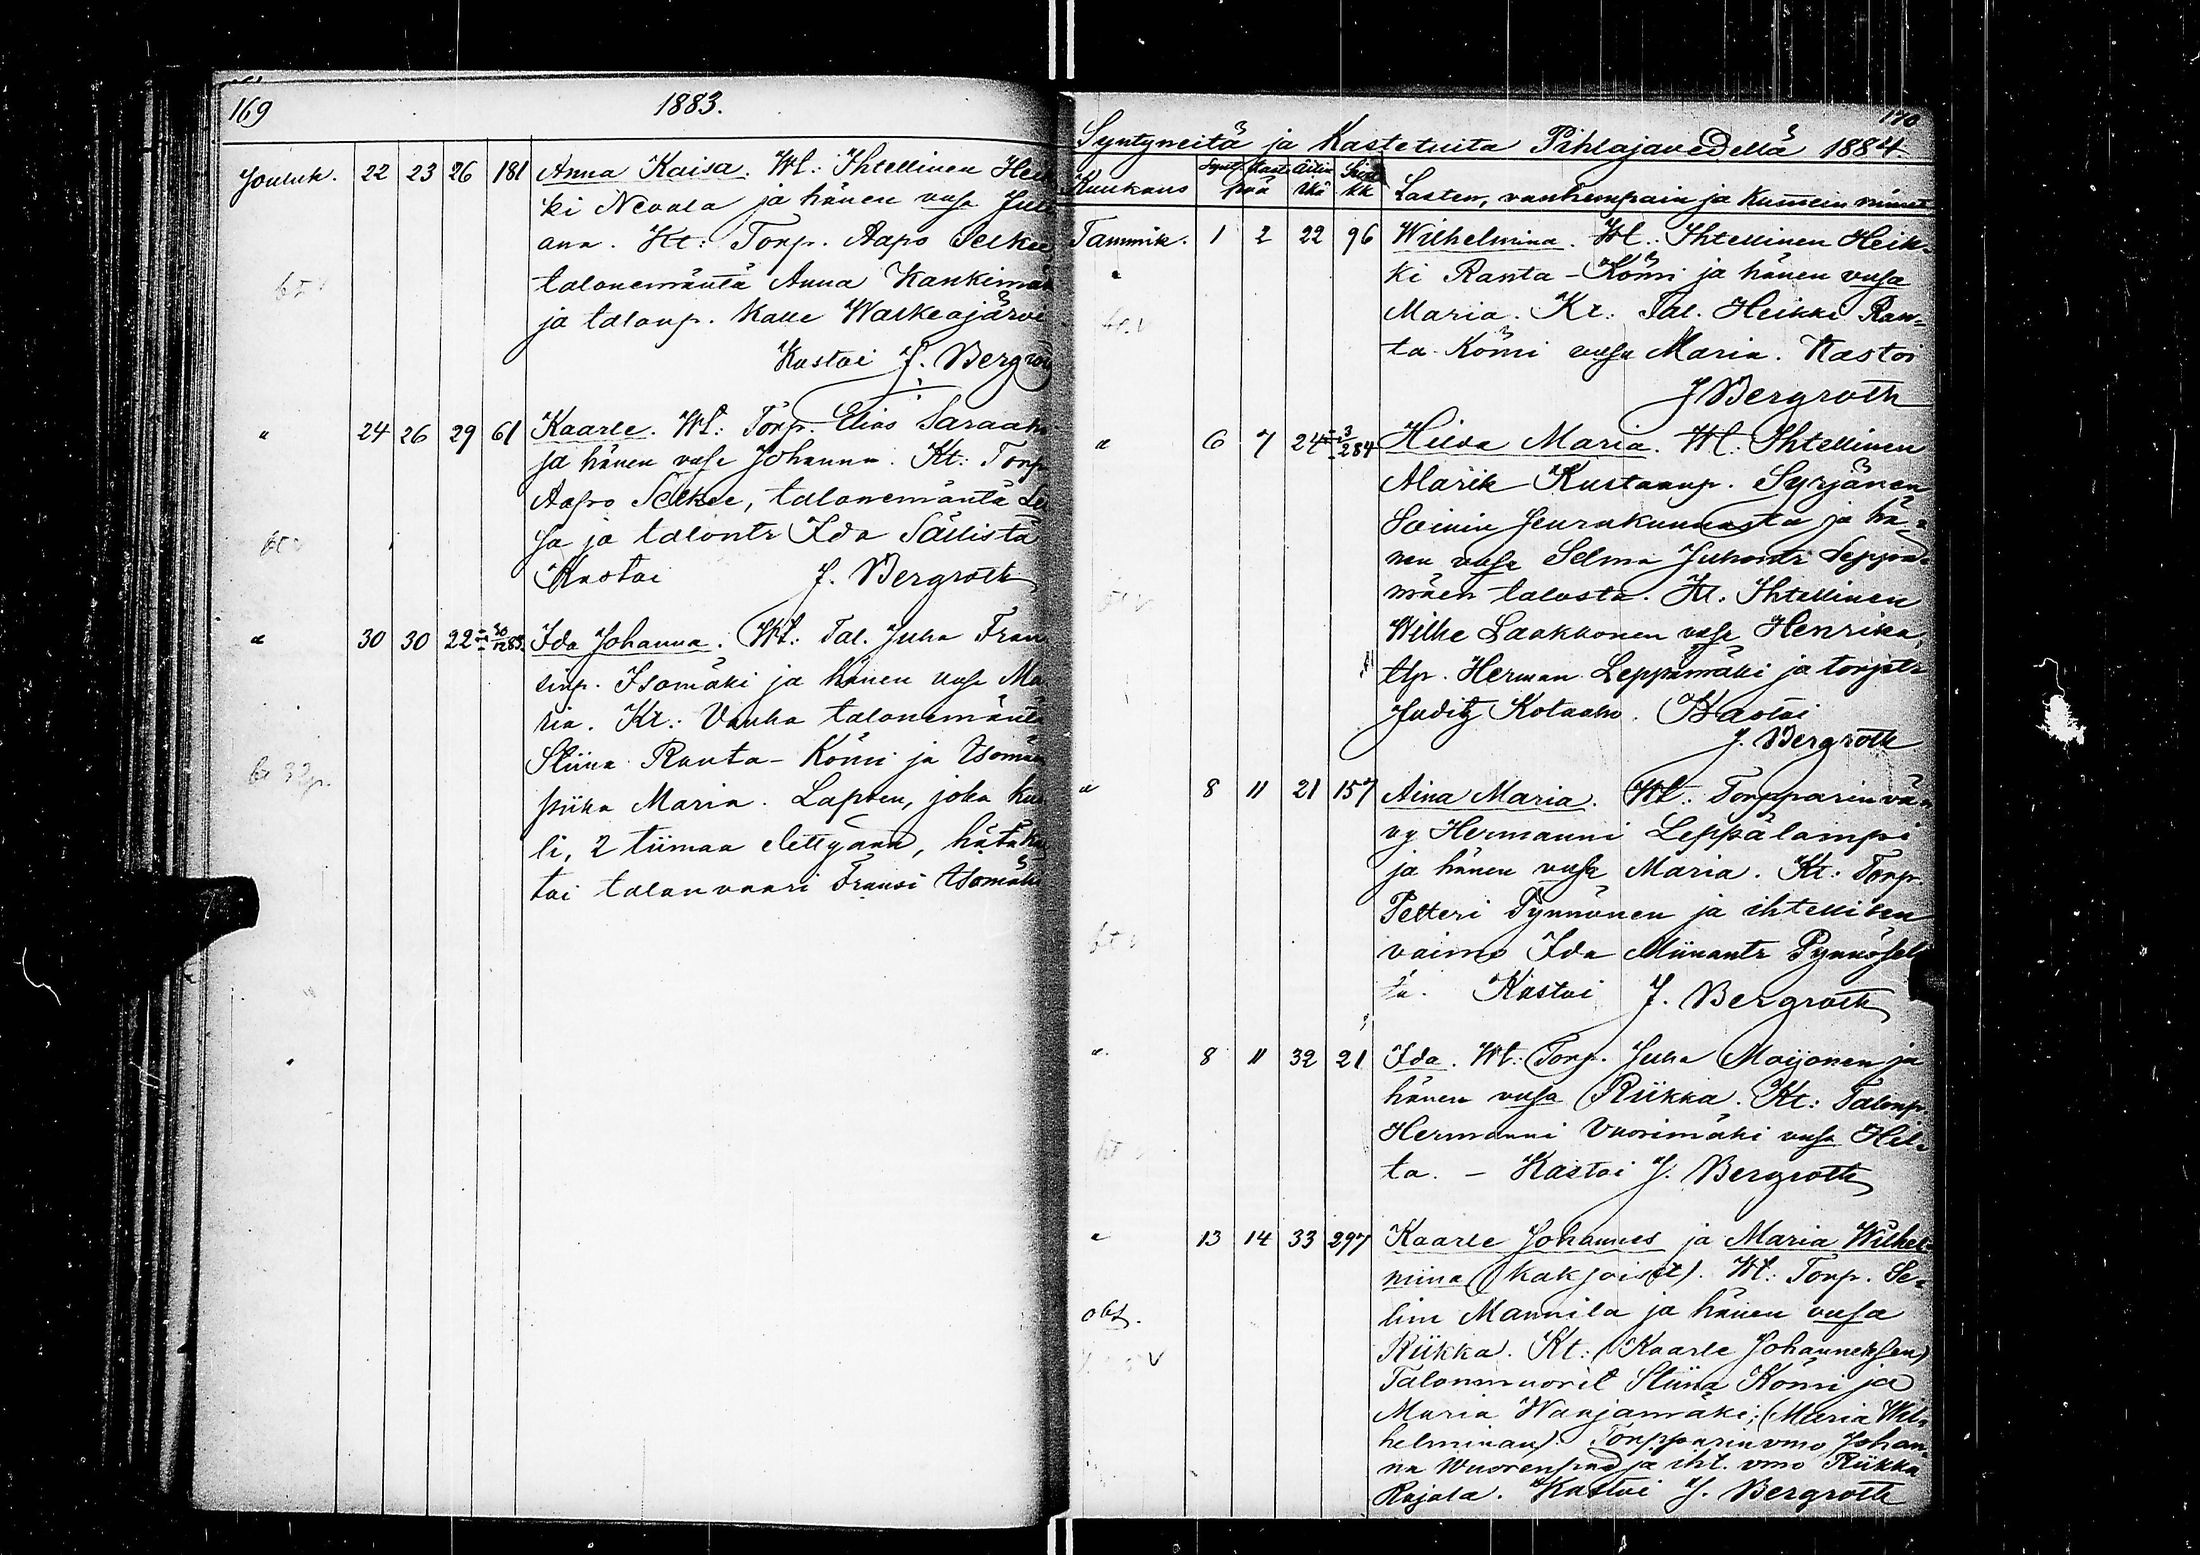 169
1883.
Jouluk. 22 23 26 181 Anna Kaisa. Wt.: Ihtellinen Heik
ki Nevala ja hänen vmsa Juli
ana. Kt: Torp. Aapo Selkee
talonemäntä Anna Kankimäk
ja talonp. Kalle Waskeajärve
Kastoi J. Bergroth
" 24 26 29 61 Kaarle. Wt.: Torp. Elias Saraaho
ja hänen vmsa Johanna. Kt: Torp
Aapo Selkee, talonemäntä Le
sa ja talontr Ida Sällistä
Kastoi J. Bergroth
" 30 30 22 30/12 83. Ida Johanna. Wt.: Tal. Juha Fran
sinp. Isomäki ja hänen vmsa Ma
ria. Kt.: Vanha talonemäntä
Stiina Ranta-Kömi ja Isomäen
piika Maria. Lapsen, joka kuo
li, 2 tiimaa elettyänn, hätäkas
toi talonvaari Fransi Isomäki
170
Syntyneitä ja Kastetuita Pihlajavedellä 1884.
Kuukaus Synt. Kast. päiv Äitin ikä Siv kk Lasten, vanhempain ja Kummein nimet
Tammik. 1 2 22 96 Wilhelmina. Wt.: Ihtellinen Heik-
ki Ranta-Kömi ja hänen vmsa
Maria. Kt.: Tal. Heikki Ran-
ta-Kömi vmsa Maria. Kastoi
J Bergroth
" 6 7 24 284 Hilda Maria. Wt: Ihtellinen
Alarik Kustaanp. Syrjänen
Soinin Seurakunnasta ja hä-
nen vmsa Selma Juhontr Leppä-
mäen talosta. Kt. Ihtellinen
Wilhe Laakkonen vmsa Henrika,
tlp. Herman Leppämäki ja torptr
Judith Kotaaho. Kastoi
J. Bergroth
" 8 11 21 157 Aina Maria. Wt.: Torpparin vä
vy Hermanni Leppälampi
ja hänen vmsa Maria. Kt.: Torp.
Petteri Pynnönen ja ihtellisen
vaimo Ida Miinantr Pynnösel
tä. Kastoi J. Bergroth
" 8 11 32 21 Ida. Wt.: Torp. Juha Moijonen ja
hänen vmsa Riikka. Kt.: Talonp.
Hermanni Vuorimäki vmsa Hil-
ta. - Kastoi J. Bergroth
" 13 14 33 297 Kaarle Johannes ja Maria Wilhel-
mina (kaksoiset). Wt.: Torp. Se-
lim Mannila ja hänen vmsa
Riikka. Kt.: (Kaarle Johanneksen)
obs.
Talonmuorit Stiina Kömi ja
Maria Warjamäki; (Maria Wil-
helminan). Torpparin vmo Johan-
na Wuorenpää ja iht. vmo Riikka
Rajala. Kastoi J. Bergroth